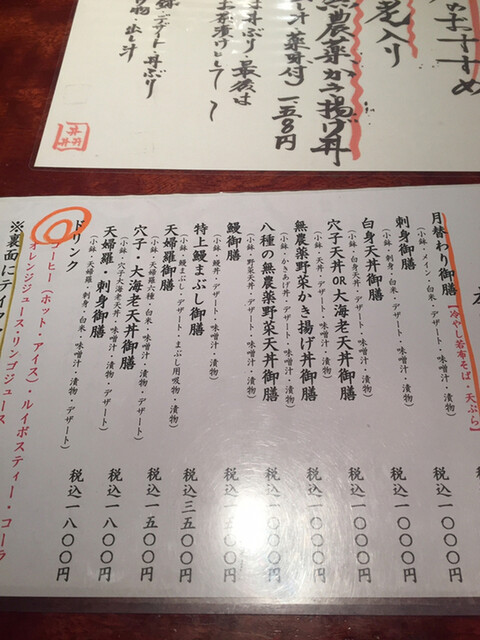 のおすすめ
老入り
無農薬かき揚げ丼
し汁 薬味付
丼ぶり、最後は
お茶漬けとして〜
デザート・丼ぶり
け物・出し汁
月替わり御膳【冷やし若布そば・天ぷら】 税込一〇〇〇円
(小鉢・メイン・白米・デザート・味噌汁・漬物)
刺身御膳 税込一〇〇〇円
(小鉢・刺身・白米・デザート・味噌汁・漬物)
白身天丼御膳 税込一〇〇〇円
(小鉢・白身天丼・デザート・味噌汁・漬物)
穴子天丼OR大海老天丼御膳 税込一〇〇〇円
無農薬野菜かき揚げ丼御膳 税込一〇〇〇円
(小鉢・かきあげ丼・デザート・味噌汁・漬物)
八種の無農薬野菜天丼御膳 税込一〇〇〇円
(小鉢・野菜天丼・デザート・味噌汁・漬物)
鰻御膳 税込一五〇〇円
(小鉢・鰻丼・デザート・味噌汁・漬物)
特上鰻まぶし御膳 税込三五〇〇円
(小鉢・鰻まぶし・デザート・まぶし用吸物・漬物)
天婦羅御膳 税込一五〇〇円
(小鉢・天婦羅六種・白米・味噌汁・漬物・デザート)
穴子・大海老天丼御膳 税込一八〇〇円
(小鉢・穴子大海老天丼・味噌汁・漬物・デザート)
天婦羅・刺身御膳 税込一八〇〇円
(小鉢・天婦羅・刺身・白米・味噌汁・漬物・デザート)
ドリンク
コーヒー(ホット・アイス)・ルイボスティー・コーラ
オレンジジュース・リンゴジュース
※裏面にテイク